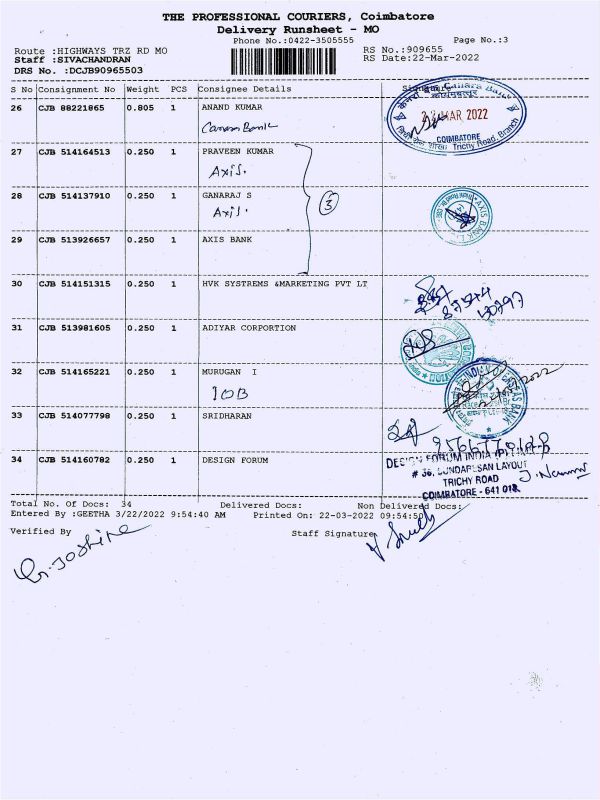 THE PROFESSIONAL COURIERS, Coimbatore
Delivery Runsheet - MO
Phone No.:0422-3505555
Page No.:3
Route :HIGHWAYS TRZ RD MO
RS No.:909655
Staff :SIVACHANDRAN
RS Date:22-Mar-2022
DRS No. :DCJB90965503
S No Consignment No Weight PCS Consignee Details Signature
26 CJB 88221865 0.805 1 ANAND KUMAR
Canara Bank
MAR 2022
COIMBATORE
Trichy Road, Branch
27 CJB 514164513 0.250 1 PRAVEEN KUMAR
Axis.
28 CJB 514137910 0.250 1 GANARAJ S
Axis.
3
AXIS BANK
29 CJB 513926657 0.250 1 AXIS BANK
30 CJB 514151315 0.250 1 HVK SYSTREMS &MARKETING PVT LT
31 CJB 513981605 0.250 1 ADIYAR CORPORTION
32 CJB 514165221 0.250 1 MURUGAN I
IOB
33 CJB 514077798 0.250 1 SRIDHARAN
34 CJB 514160782 0.250 1 DESIGN FORUM
DESIGN FORUM INDIA (P)
# 36, SUNDARESAN LAYOUT
TRICHY ROAD
COIMBATORE - 641 018.
Total No. Of Docs: 34 Delivered Docs: Non Delivered Docs:
Entered By :GEETHA 3/22/2022 9:54:40 AM Printed On: 22-03-2022 09:54:50
Verified By Staff Signature